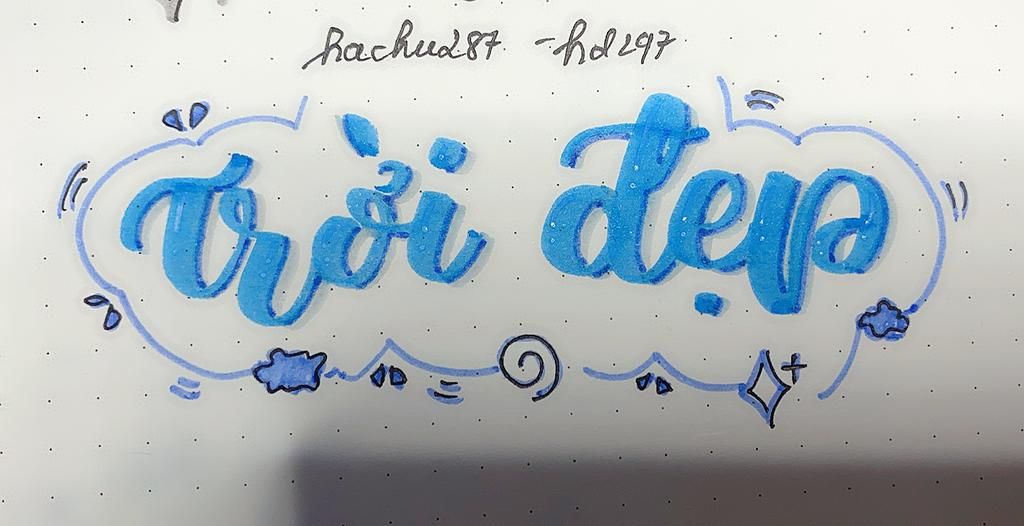 hachu287 - hd297
trời đẹp